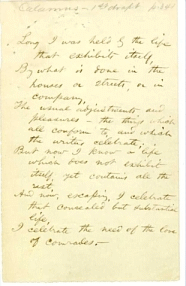 Calamus - 1st draft p. 341
Long I was held by the life
that exhibits itself,
By what is done in the
houses or streets, or in
company,
The usual adjustments and
pleasures — the thing which
all conform to, and which
the writer celebrates;
But now I know a life
which does not exhibit
itself, yet contains all the
rest,
And now, escaping, I celebrate
that concealed but substantial
life,
I celebrate the need of the love
of comrades.—